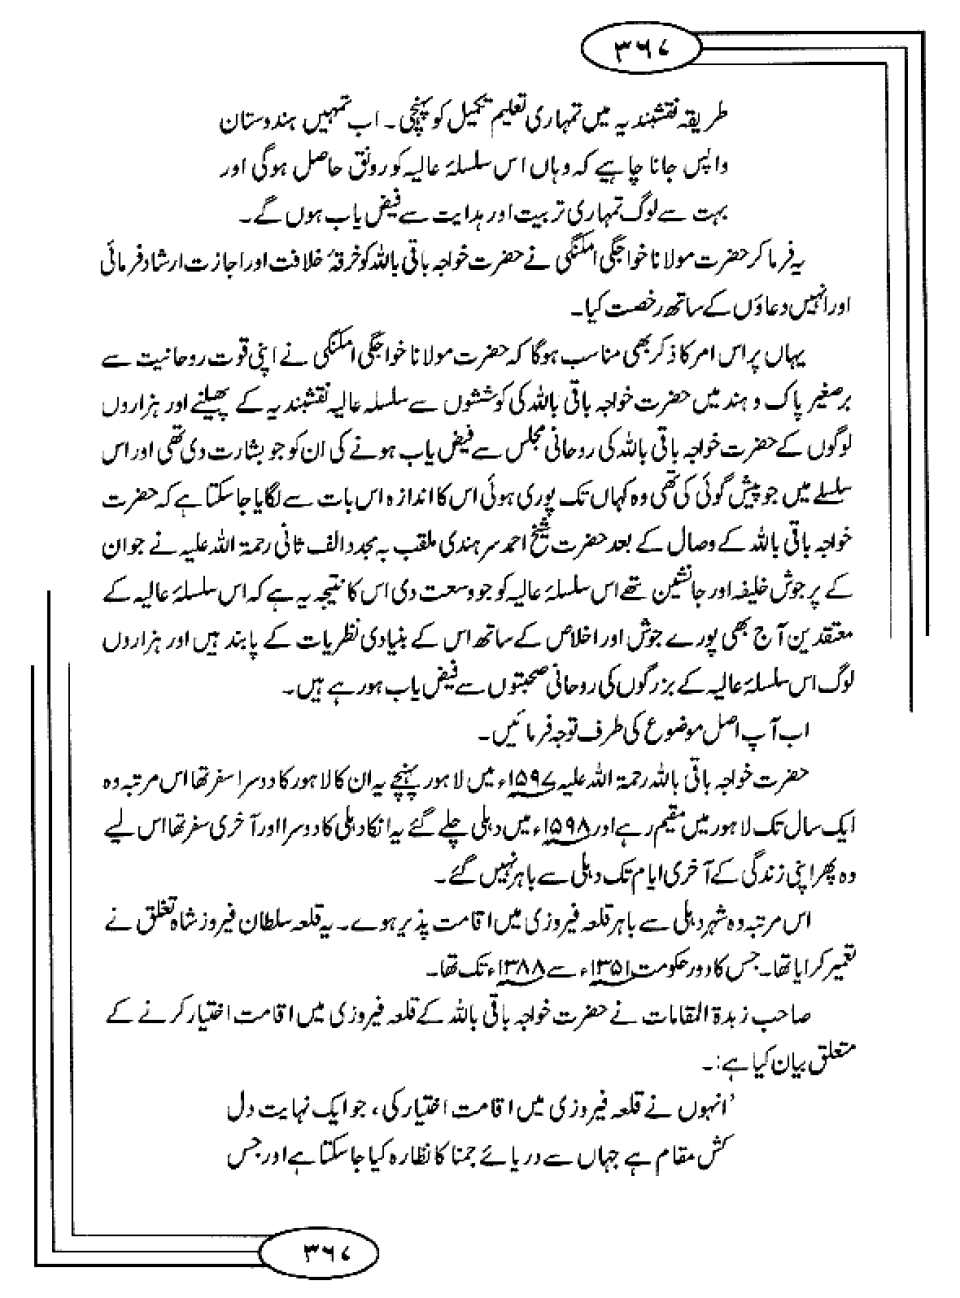 ۳۶۷
طریقہ نقشبندیہ میں تمہاری تعلیم تکمیل کو پہنچی۔ اب تمہیں ہندوستان
واپس جانا چاہیے کہ وہاں اس سلسلۂ عالیہ کو رونق حاصل ہوگی اور
بہت سے لوگ تمہاری تربیت اور ہدایت سے فیض یاب ہوں گے۔
یہ فرما کر حضرت مولانا خواجگی امکنگی نے حضرت خواجہ باقی باللہ کو خرقۂ خلافت اور اجازت ارشاد فرمائی
اور انہیں دعاؤں کے ساتھ رخصت کیا۔
یہاں پر اس امر کا ذکر بھی مناسب ہوگا کہ حضرت مولانا خواجگی امکنگی نے اپنی قوت روحانیت سے
برصغیر پاک و ہند میں حضرت خواجہ باقی باللہ کی کوششوں سے سلسلہ عالیہ نقشبندیہ کے پھیلنے اور ہزاروں
لوگوں کے حضرت خواجہ باقی باللہ کی روحانی مجلس سے فیض یاب ہونے کی ان کو جو بشارت دی تھی اور اس
سلسلے میں جو پیش گوئی کی تھی وہ کہاں تک پوری ہوئی اس کا اندازہ اس بات سے لگایا جا سکتا ہے کہ حضرت
خواجہ باقی باللہ کے وصال کے بعد حضرت شیخ احمد سرہندی ملقب بہ مجدد الف ثانی رحمۃ اللہ علیہ نے جو ان
کے پرجوش خلیفہ اور جانشین تھے اس سلسلۂ عالیہ کو جو وسعت دی اس کا نتیجہ یہ ہے کہ اس سلسلۂ عالیہ کے
معتقدین آج بھی پورے جوش اور اخلاص کے ساتھ اس کے بنیادی نظریات کے پابند ہیں اور ہزاروں
لوگ اس سلسلۂ عالیہ کے بزرگوں کی روحانی صحبتوں سے فیض یاب ہو رہے ہیں۔
اب آپ اصل موضوع کی طرف توجہ فرمائیں۔
حضرت خواجہ باقی باللہ رحمۃ اللہ علیہ ۱۵۹۷ء میں لاہور پہنچے یہ ان کا لاہور کا دوسرا سفر تھا اس مرتبہ وہ
ایک سال تک لاہور میں مقیم رہے اور ۱۵۹۸ء میں دہلی چلے گئے یہ انکا دہلی کا دوسرا اور آخری سفر تھا اس لیے
وہ پھر اپنی زندگی کے آخری ایام تک دہلی سے باہر نہیں گئے۔
اس مرتبہ وہ شہر دہلی سے باہر قلعہ فیروزی میں اقامت پذیر ہوے۔ یہ قلعہ سلطان فیروز شاہ تغلق نے
تعمیر کرایا تھا۔ جس کا دور حکومت ۱۳۵۱ء سے ۱۳۸۸ء تک تھا۔
صاحب زبدۃ المقامات نے حضرت خواجہ باقی باللہ کے قلعہ فیروزی میں اقامت اختیار کرنے کے
متعلق بیان کیا ہے:۔
'انہوں نے قلعہ فیروزی میں اقامت اختیار کی، جو ایک نہایت دل
کش مقام ہے جہاں سے دریائے جمنا کا نظارہ کیا جا سکتا ہے اور جس
۳۶۷